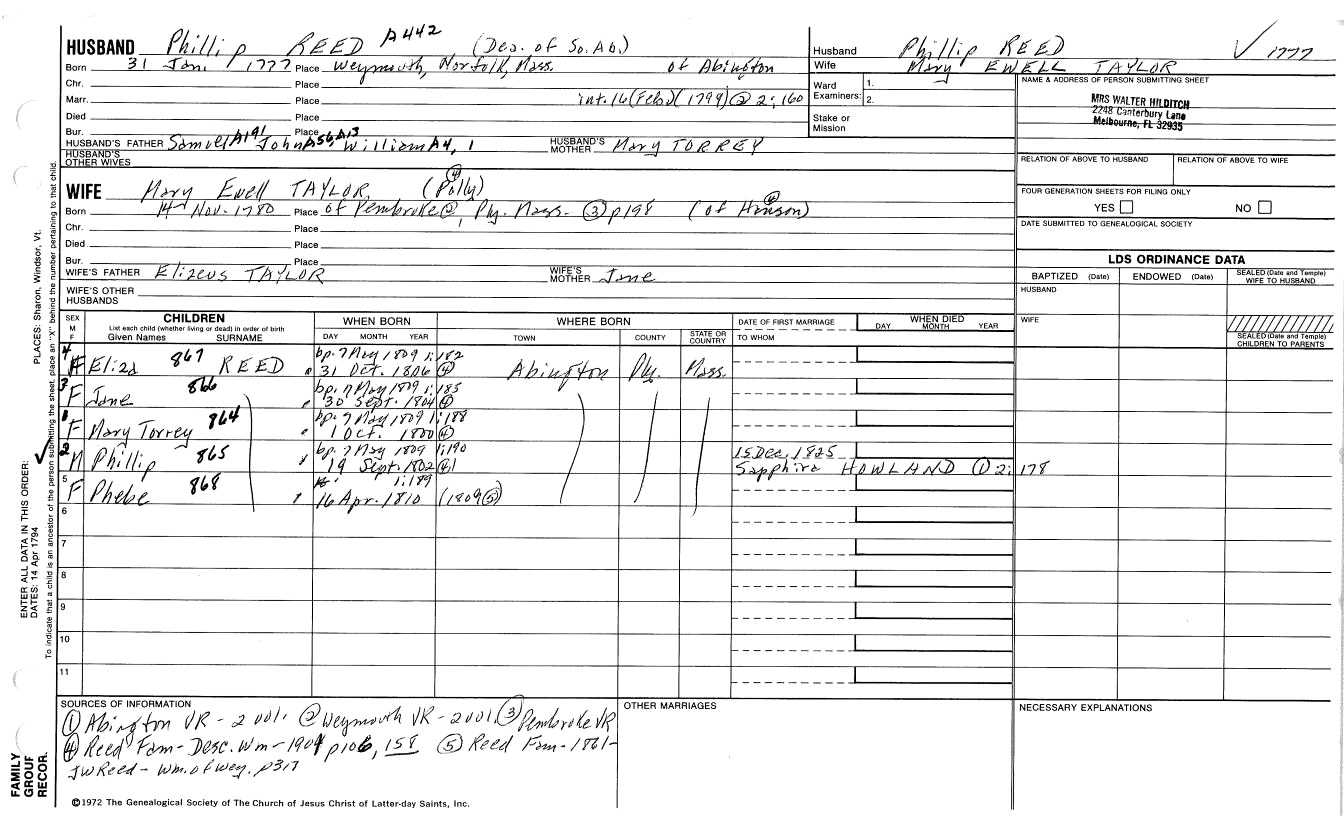 HUSBAND Phillip REED A442 (Dea. of So. Ab.)
Born 31 Jan. 1777 Place Weymouth, Norfolk, Mass. of Abington
Chr. Place
Marr. Place int. 16 (Feb.) (1799) @ 2; 160
Died Place
Bur. Place
HUSBAND'S FATHER Samuel A191 John A56, A13 William A4, 1 HUSBAND'S MOTHER Mary TORREY
HUSBAND'S OTHER WIVES
Husband Phillip REED ✓ 1777
Wife Mary EWELL TAYLOR
Ward Examiners: 1. 2.
Stake or Mission
NAME & ADDRESS OF PERSON SUBMITTING SHEET
MRS WALTER HILDITCH
2248 Canterbury Lane
Melbourne, FL 32935
RELATION OF ABOVE TO HUSBAND RELATION OF ABOVE TO WIFE
FOUR GENERATION SHEETS FOR FILING ONLY
YES NO
DATE SUBMITTED TO GENEALOGICAL SOCIETY
WIFE Mary Ewell TAYLOR (Polly) ④
Born 14 Nov. 1780 Place of Pembroke @, Ply. Mass. ③ p198 (of Hanson) ④
Chr. Place
Died Place
Bur. Place
WIFE'S FATHER Elizeus TAYLOR WIFE'S MOTHER Jane
WIFE'S OTHER HUSBANDS
LDS ORDINANCE DATA
BAPTIZED (Date) ENDOWED (Date) SEALED (Date and Temple) WIFE TO HUSBAND
HUSBAND
WIFE
SEALED (Date and Temple) CHILDREN TO PARENTS
SEX M F CHILDREN List each child (whether living or dead) in order of birth Given Names SURNAME
WHEN BORN DAY MONTH YEAR
WHERE BORN TOWN COUNTY STATE OR COUNTRY
DATE OF FIRST MARRIAGE TO WHOM
WHEN DIED DAY MONTH YEAR
4 F Eliza 867 REED bp. 7 May 1809 1:182
31 Oct. 1806 ④ Abington Ply. Mass.
3 F Jane 866 bp. 7 May 1809 1:185
30 Sept. 1804 ④
1 F Mary Torrey 864 bp. 7 May 1809 1:188
1 Oct. 1800 ④
2 M Phillip 865 bp. 7 May 1809 1:190
19 Sept. 1802 ④ 15 Dec. 1825
Sapphira HOWLAND ① 2: 178
5 F Phebe 868 1:189
16 Apr. 1810 (1809 ⑤)
6
7
8
9
10
11
SOURCES OF INFORMATION
① Abington VR - 2 vol. @ Weymouth VR - 2 vol. ③ Pembroke VR
④ Reed Fam - Desc. Wm - 1901 p106, 158 ⑤ Reed Fam - 1861 -
JW Reed - Wm. of Wey. p317
OTHER MARRIAGES
NECESSARY EXPLANATIONS
©1972 The Genealogical Society of The Church of Jesus Christ of Latter-day Saints, Inc.
FAMILY GROUP RECOR.
ENTER ALL DATA IN THIS ORDER:
DATES: 14 Apr 1794
PLACES: Sharon, Windsor, Vt.
To indicate that a child is an ancestor of the person submitting the sheet, place an "X" behind the number pertaining to that child.